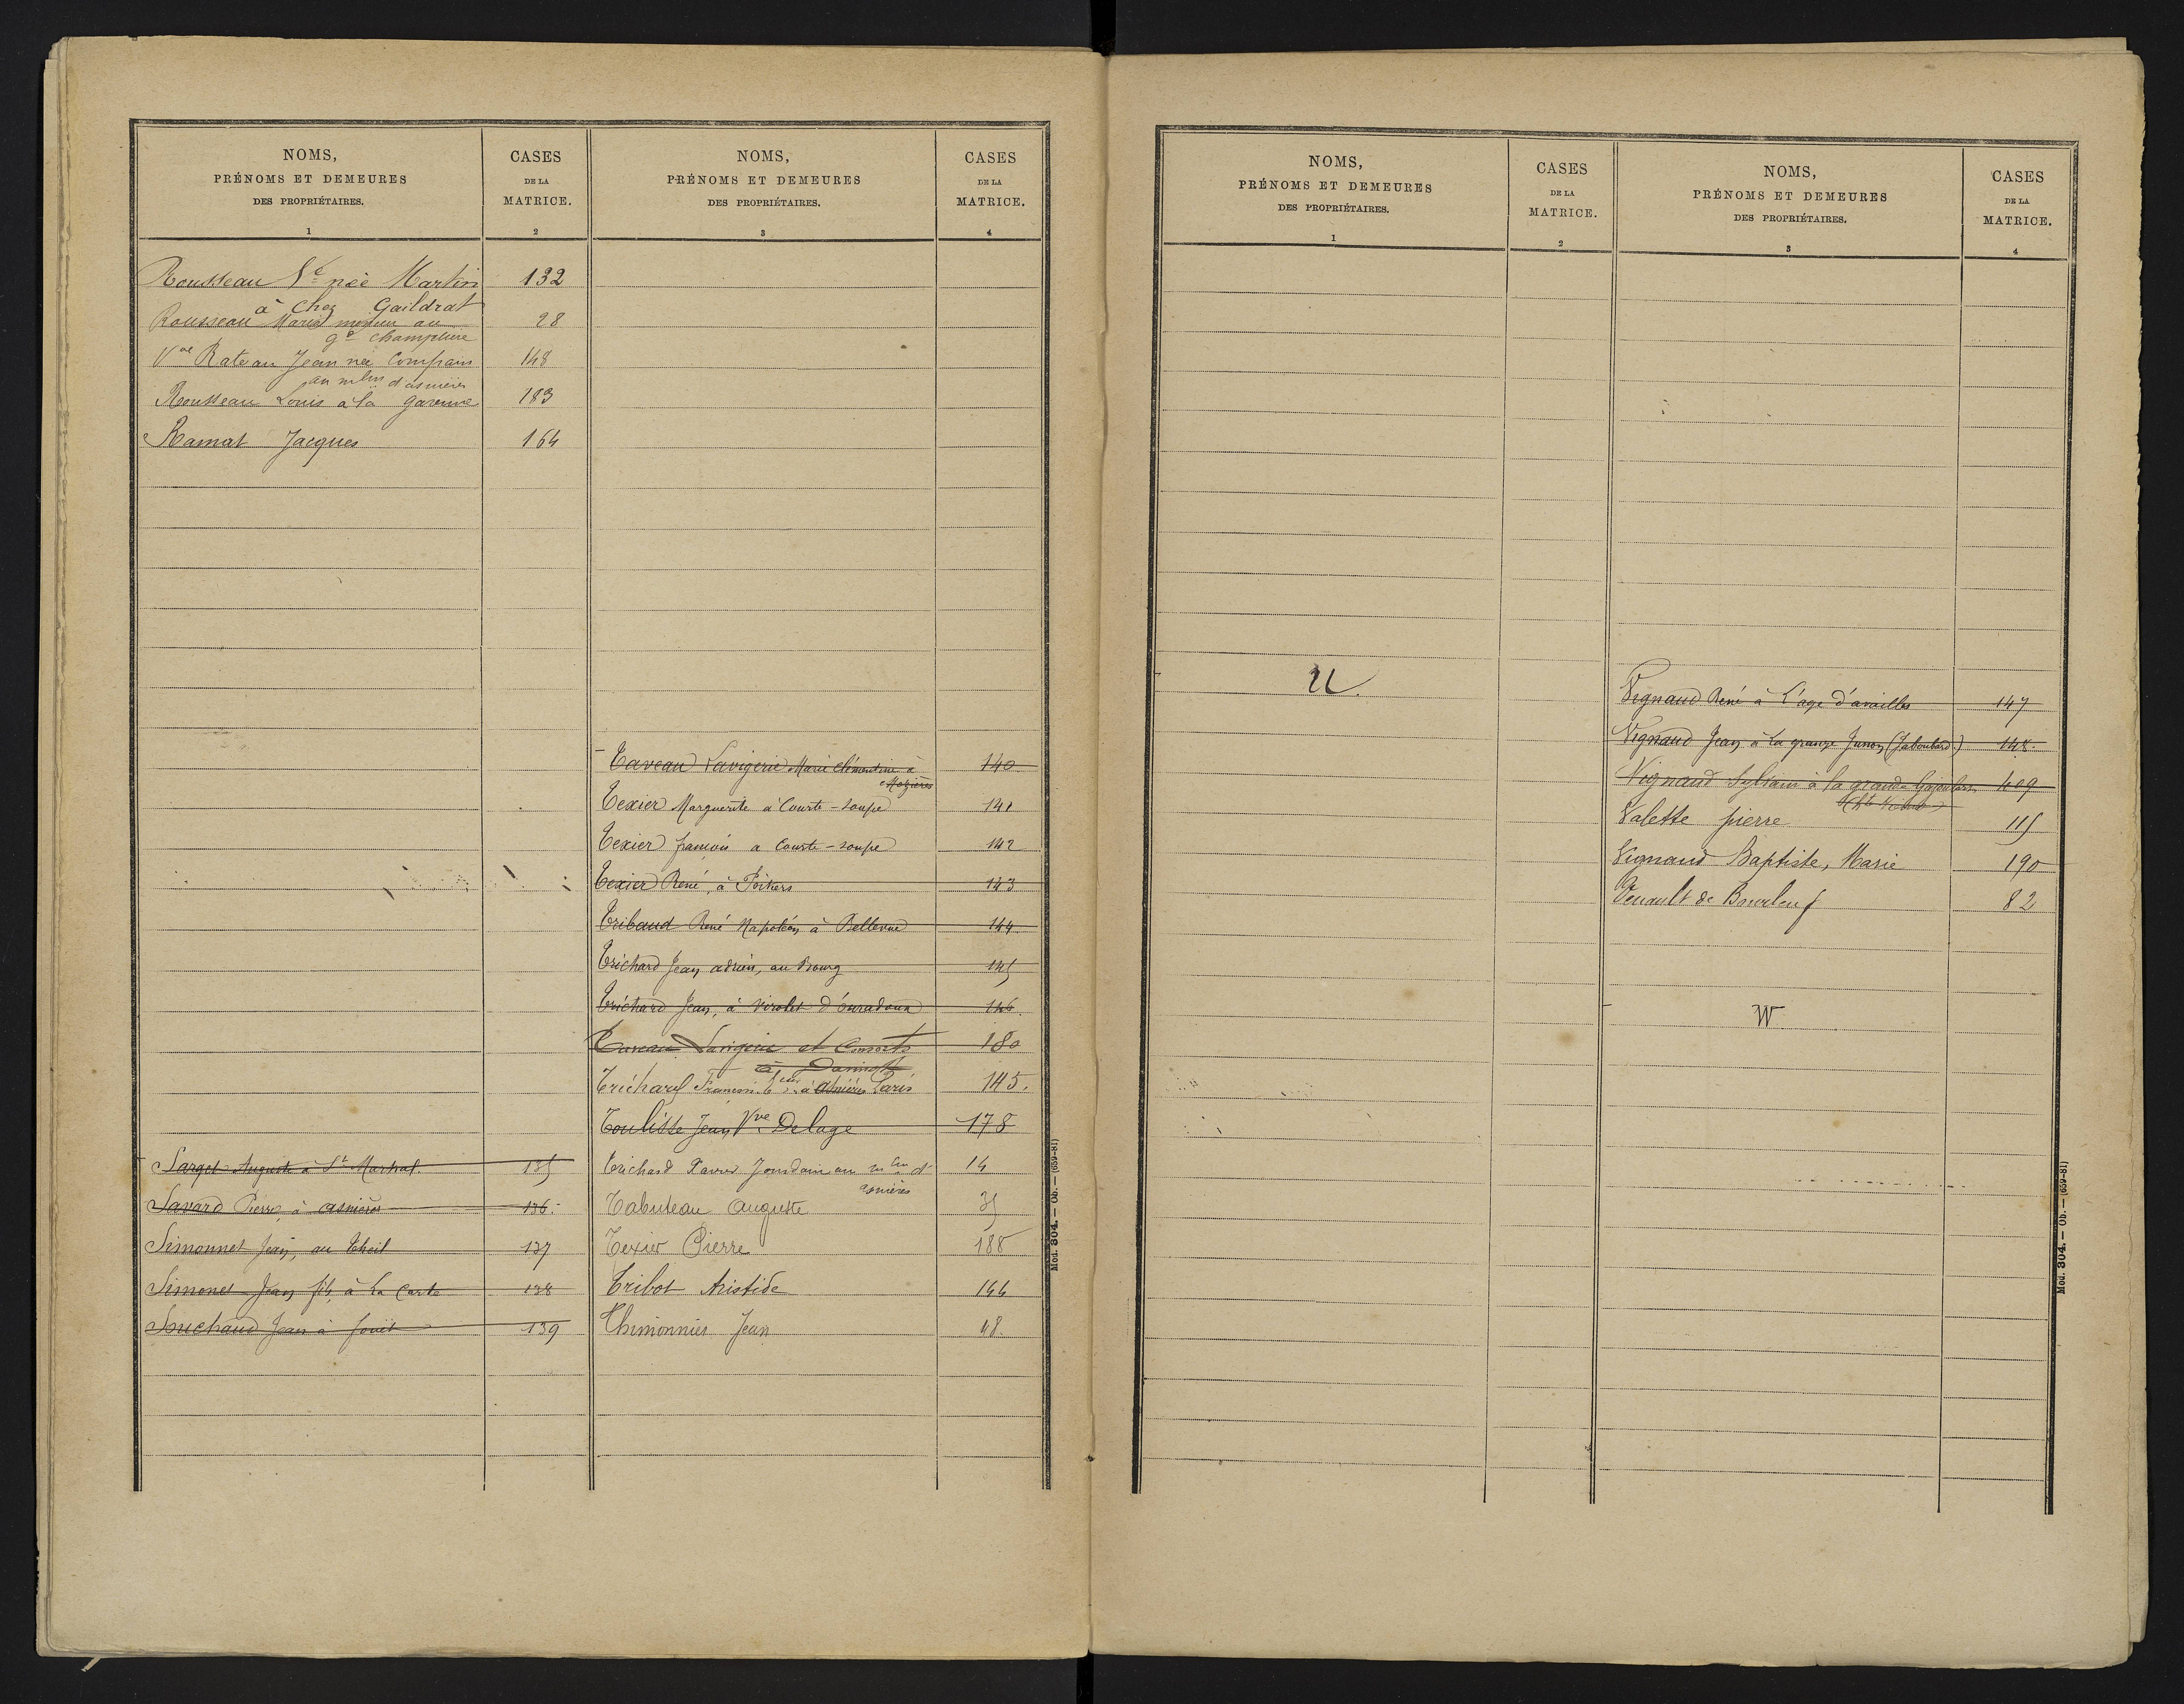 NOMS,
PRÉNOMS ET DEMEURES
DES PROPRIÉTAIRES.
1
CASES
DE LA
MATRICE.
2
Rousseau Ve née Martin 132
à Chez Gaildrat
Rousseau Marie au 28
gd champlure
Vve Rateau Jean née Compain 148
au mlin d'asnières
Rousseau Louis à la garenne 183
Ramat Jacques 164
Sarget Auguste à St Martial 135
Savard Pierre à asnières 136
Simonnet Jean, au Theil 137
Simonet Jean fils, à La Carte 138
Souchaud Jean à 139
NOMS,
PRÉNOMS ET DEMEURES
DES PROPRIÉTAIRES.
3
CASES
DE LA
MATRICE.
4
Taveau Lavigerie Marie Clémentine à 140
Mozières
Texier Marguerite à Courte-soupe 141
Texier françois a Courte-soupe 142
Texier René, à Poitiers 143
Tribaud René Napoléon à Bellevue 144
Trichard Jean adrien, au Bourg 145
Trichard Jean, à Virolet d'ouradoux 146.
Taveau Lavigerie et Consorts 180
Trichard François à asnières Paris 145.
Toulisse Jean Vve Delage 178
Trichard Xavier Jourdain au mlin d' 14
asnières
Tabuteau Auguste 35
Texier Pierre 188
Tribot Aristide 144
Thimonnier Jean 48.
Mod. 304. — Ob. — (659-81)
NOMS,
PRÉNOMS ET DEMEURES
DES PROPRIÉTAIRES.
1
CASES
DE LA
MATRICE.
2
U.
NOMS,
PRÉNOMS ET DEMEURES
DES PROPRIÉTAIRES.
3
CASES
DE LA
MATRICE.
4
Vignaud René à L'age d'availles 147
Vignaud Jean à la grange Junon (Jaboulard) 148.
Vignaud Sylvain à la grande 109
Valette pierre 115
Vignaud Baptiste, Marie 190
Venault de Bourleuf 82
W
Mod. 304. — Ob. — (659-81)